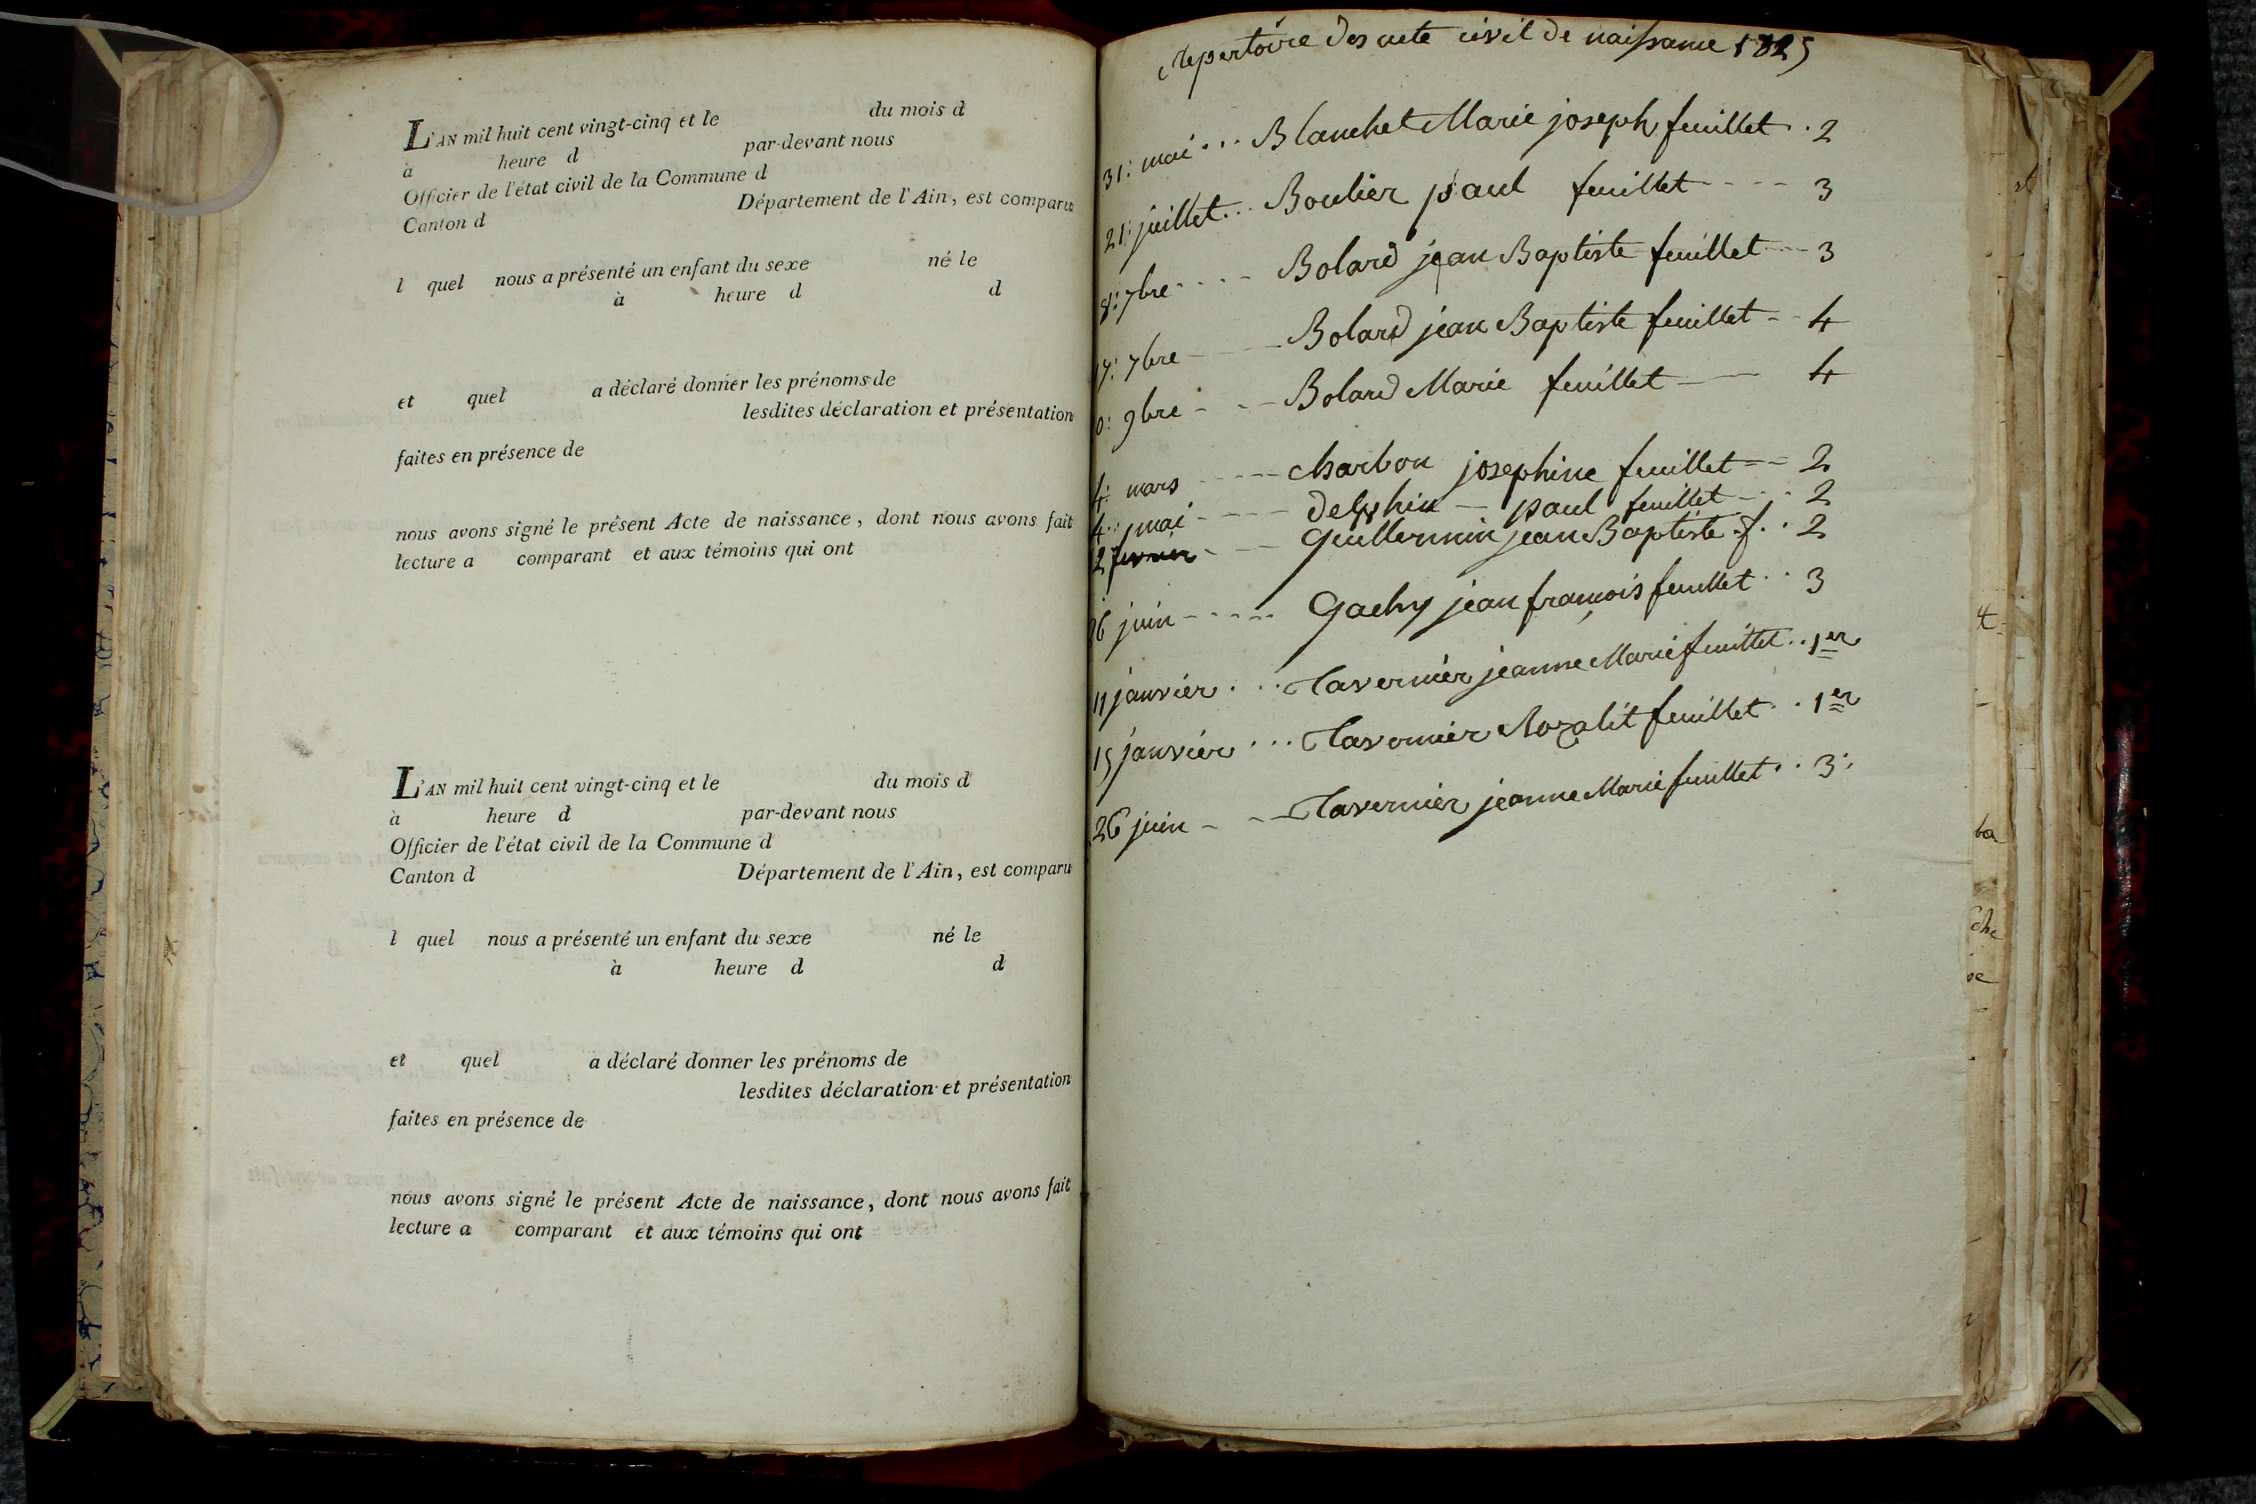 L'AN mil huit cent vingt-cinq et le du mois d
à heure d par-devant nous
Officier de l'état civil de la Commune d
Canton d Département de l'Ain, est comparu
l quel nous a présenté un enfant du sexe né le
à heure d d
et quel a déclaré donner les prénoms de
lesdites déclaration et présentation
faites en présence de
nous avons signé le présent Acte de naissance, dont nous avons fait
lecture a comparant et aux témoins qui ont
L'AN mil huit cent vingt-cinq et le du mois d
à heure d par-devant nous
Officier de l'état civil de la Commune d
Canton d Département de l'Ain, est comparu
l quel nous a présenté un enfant du sexe né le
à heure d d
et quel a déclaré donner les prénoms de
lesdites déclaration et présentation
faites en présence de
nous avons signé le présent Acte de naissance, dont nous avons fait
lecture a comparant et aux témoins qui ont
repertoire des acte civil de naissance 1825
31: mai ... Blanchet Marie joseph feuillet . 2
21: juillet ... Boulier paul feuillet ---- 3
8: 7bre ---- Bolard jean Baptiste feuillet --- 3
17: 7bre --- Bolard jean Baptiste feuillet -- 4
0: 9bre --- Bolard Marie feuillet --- 4
4: mars ---- charbon josephine feuillet -- 2
4: mai ---- delphin -- paul feuillet -.. 2
2 fevrier --- Guillermin jean Baptiste f.. 2
26 juin ----- Gachy jean françois feuillet .. 3
11 janvier ... Tavernier jeanne Marie feuillet .. 1er
15 janvier ... Tavernier Rozalit feuillet .. 1er
26 juin --- Tavernier jeanne Marie feuillet .. 3: